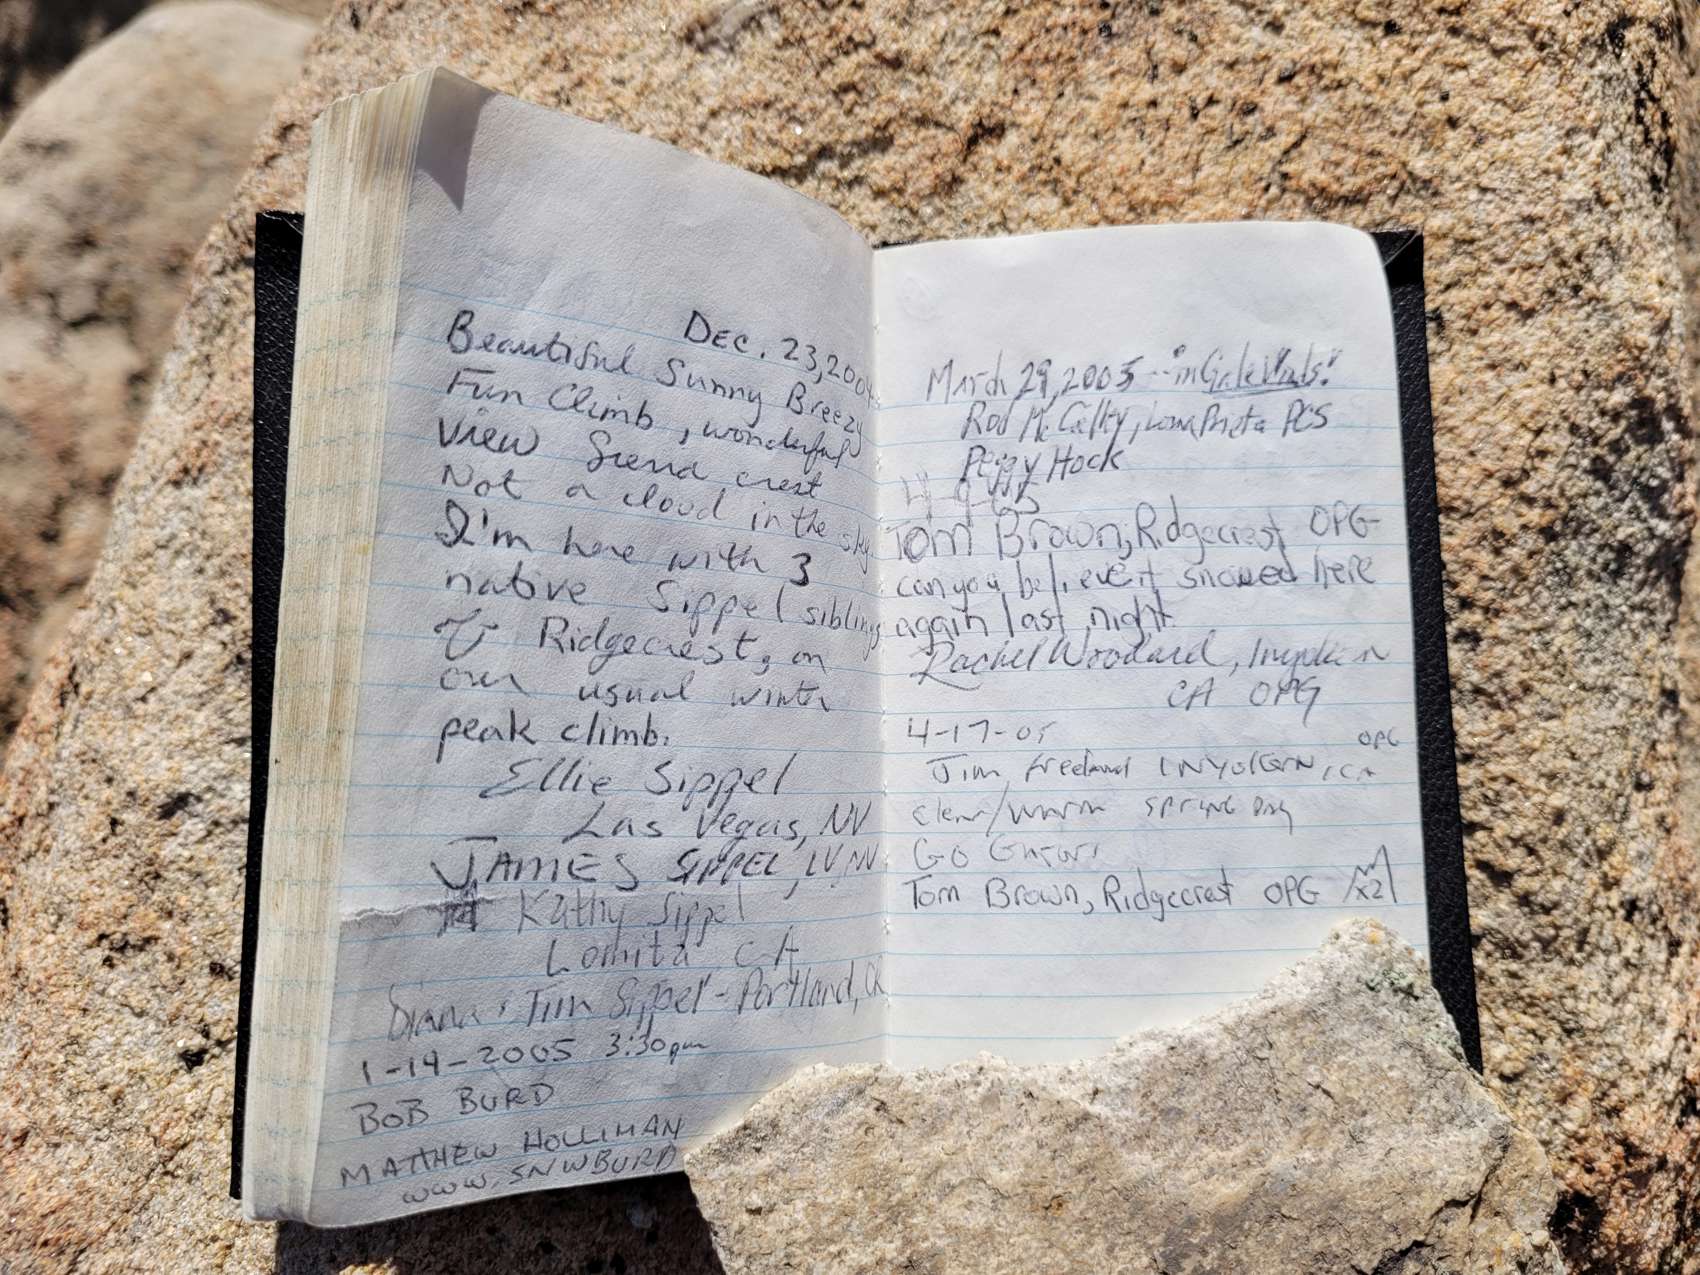 Dec. 23, 2004
Beautiful Sunny Breezy
Fun Climb, wonderful
view Sierra crest
Not a cloud in the sky
I'm here with 3
native Sippel siblings
of Ridgecrest, on
our usual winter
peak climb.
Ellie Sippel
Las Vegas, NV
JAMES SIPPEL, LV, NV
Kathy Sippel
Lomita CA
Diana & Tim Sippel - Portland, OR
1-14-2005 3:30pm
BOB BURD
MATTHEW HOLLIMAN
www.SNWBURD
March 29, 2005 -- in Gale Winds!
Rod McCalley, Loma Prieta PCS
Peggy Hock
4-9-05
Tom Brown, Ridgecrest OPG
can you believe it snowed here
again last night
Rachel Woodard, Inyokern
CA OPG
4-17-05
OPG
Jim Freeland INYOKERN, CA
clear/warm SPRING DAY
GO
Tom Brown, Ridgecrest OPG x2